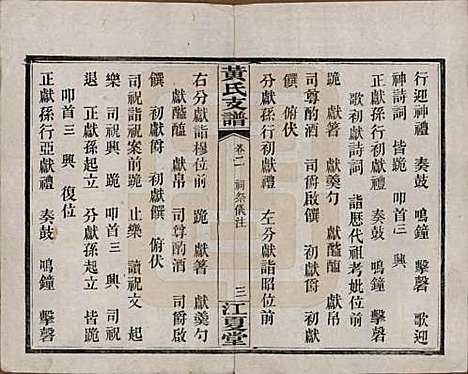 行迎神禮 奏鼓 鳴鐘 擊磬 歌迎
神詩詞 皆跪 叩首三 興 行初獻禮
歌初獻詩詞 詣歷代祖考妣位前
跪 獻箸 獻羹勺 獻醯醢 獻帛
司尊酌酒 司爵啟饌 初獻爵 初獻
饌 俯伏
分獻孫行初獻禮 左分獻詣昭位前
黃氏支譜 卷二 祠祭儀注 三 江夏堂
右分獻詣穆位前 跪 獻箸 獻羹勺
獻醯醢 獻帛 司尊酌酒 司爵啟
饌 初獻爵 初獻饌 俯伏
司祝詣祝案前跪 止樂 讀祝文 起
樂 司祝興 跪 叩首三 興 司祝
退 正獻孫起立 分獻孫起立 皆跪
叩首三 興 復位
正獻孫行亞獻禮 奏鼓 鳴鐘 擊磬